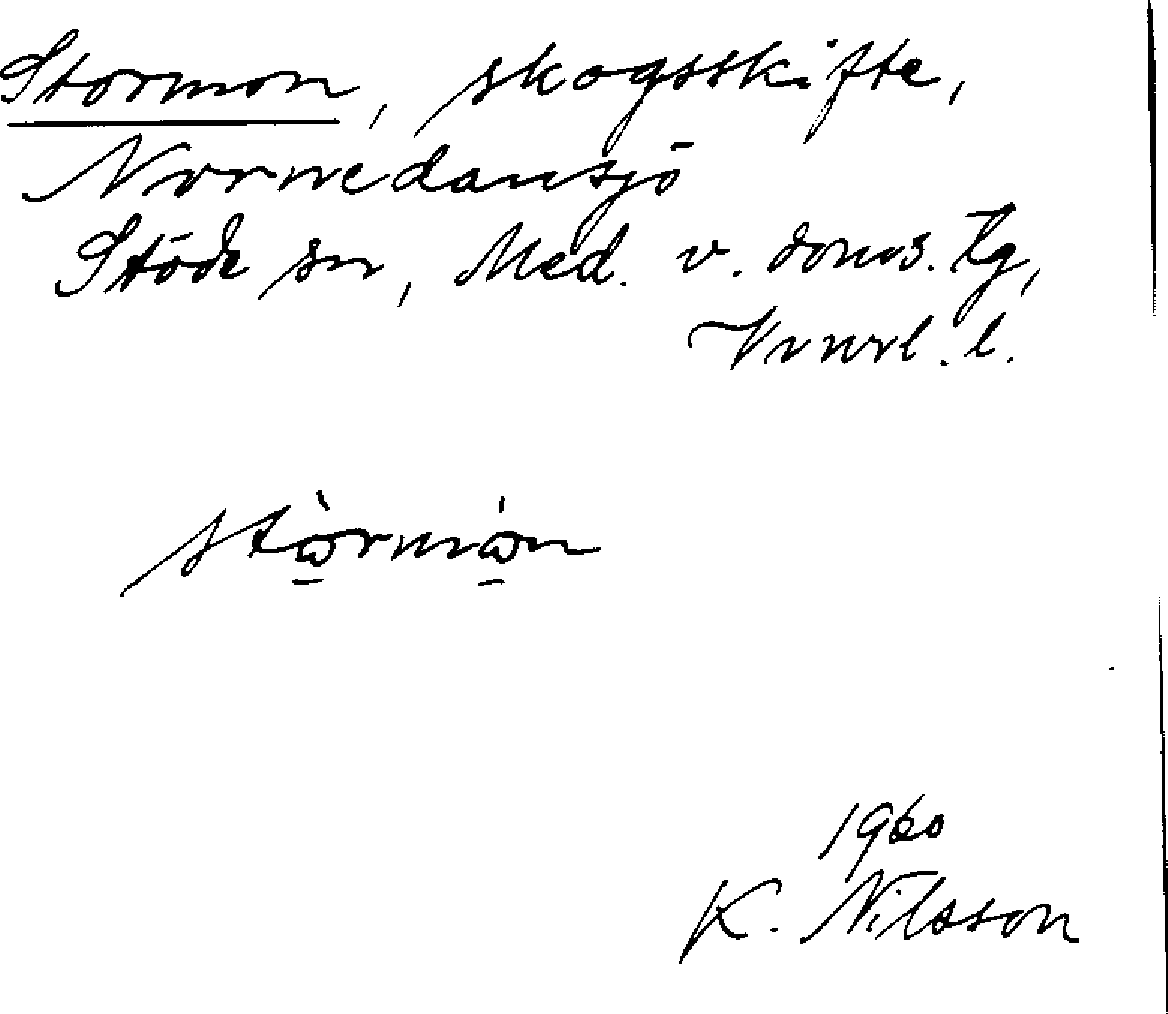 Stormon, skogsskifte,
Nornedansjö
Stöde sn, Med. v. doms. Tg,
Vnorl. l.
stòrmón
1960
K. Nilsson